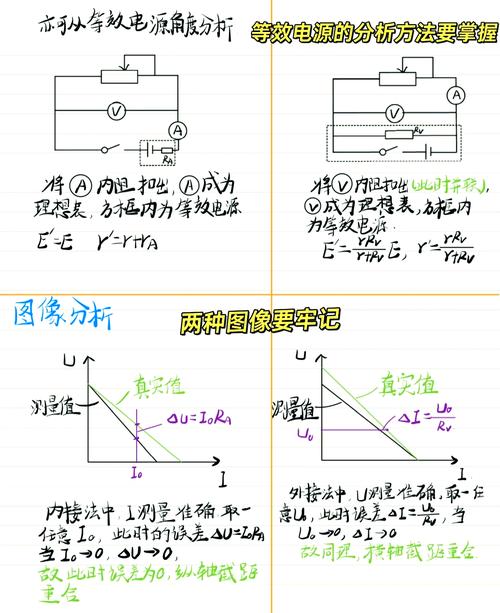 亦可从等效电源角度分析
等效电源的分析方法要掌握
V
A
RA
将Ⓐ内阻扣出,Ⓐ成为
理想表,方框内为等效电源
E'=E r'=r+rA
A
V
RV
将Ⓥ内阻扣出(此时并联),
Ⓥ成为理想表,方框内
为等效电源.
E'=rRV/(r+RV)E, r'=rRV/(r+RV)
图像分析
两种图像要牢记
U
真实值
测量值
ΔU=I0RA
I0
I
内接法中,I测量准确,取一
任意I0,此时的误差ΔU=I0RA
当I0→0,ΔU→0,
故此时误差为0,纵轴截距
重合
U
真实值
测量值
ΔI=U0/RV
U0
I
外接法中,U测量准确,取一任
意U0,此时误差ΔI=U0/RV,当
U0→0,ΔI→0
故同理,横轴截距重合.